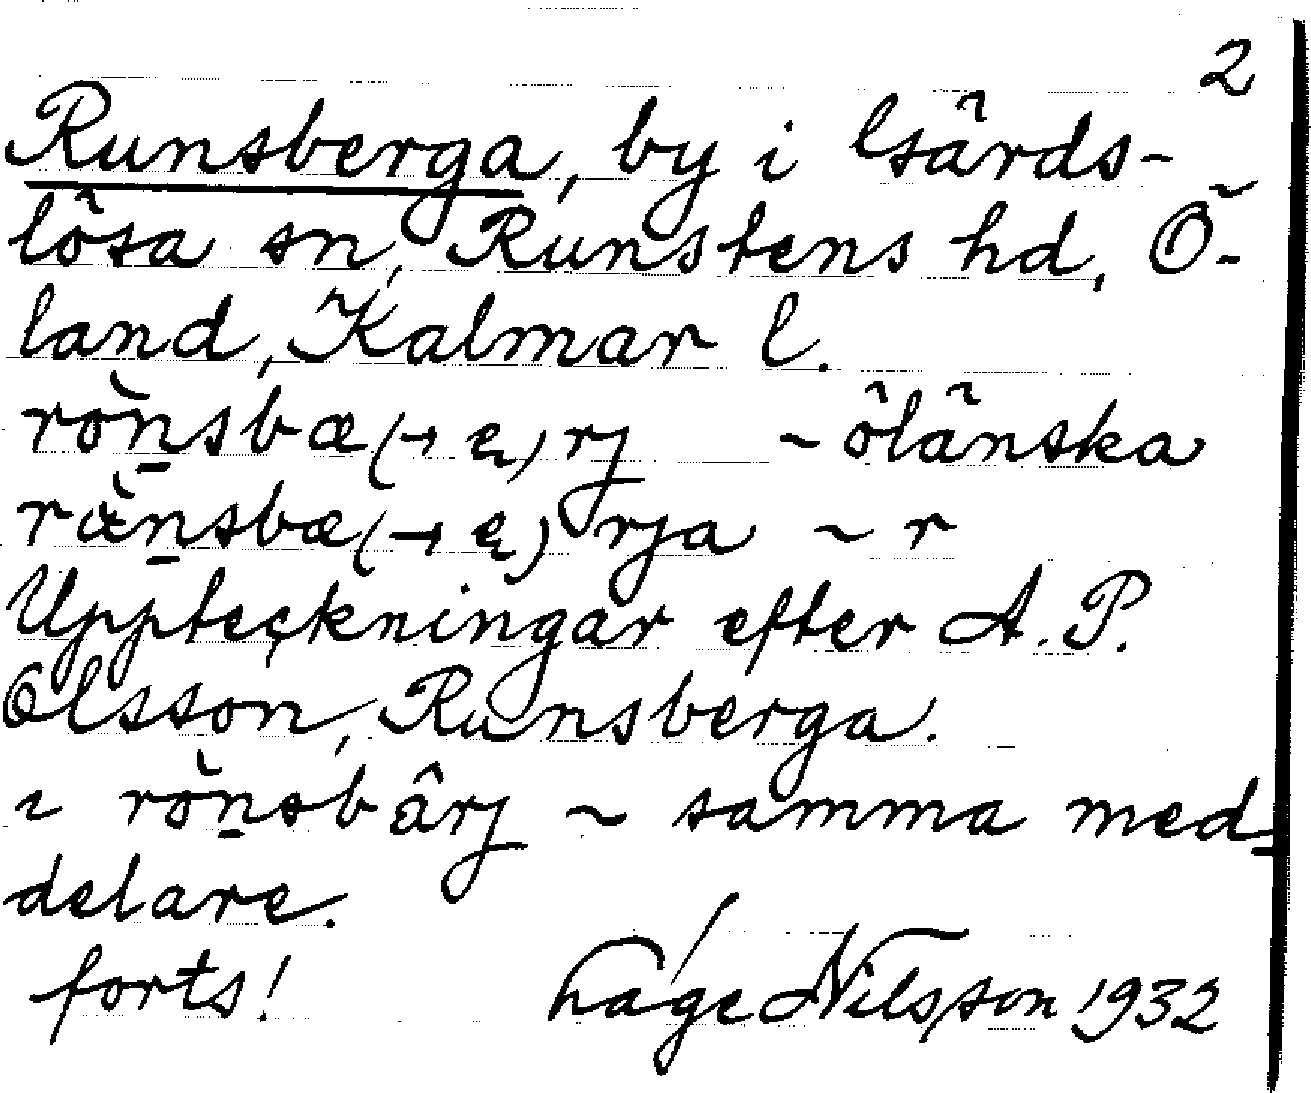 2
Runsberga, by i Gärds-
lösa sn, Runstens hd, Ö-
land, Kalmar l.
rön̠sbæ(→ ę) rj ~ öländska
rän̠sbæ(→ ę) rja ~ r
Uppteckningar efter A. P.
Olsson, Runsberga.
~ rön̠sbârj ~ samma med-
delare.
forts! Låge Nilsson 1932